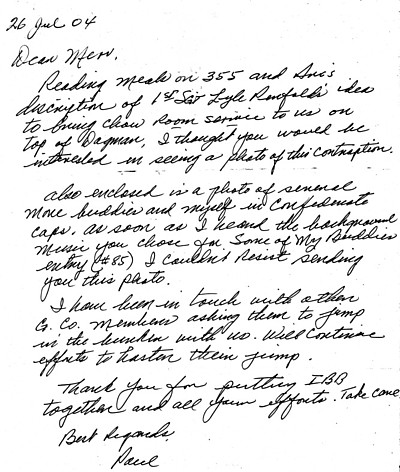 26 Jul 04
Dear Merv.
Reading Meals on 355 and Ari's
discription of 1st Sgt Lyle idea
to bring chow room service to us on
top of Dagman, I thought you would be
interested in seeing a photo of this contraption.
Also enclosed is a photo of several
more buddies and myself in Confederate
caps. As soon as I heard the background
music you chose for Some of My Buddies
entry (#85) I couldn't resist sending
you this photo.
I have been in touch with other
G. Co. Members asking them to jump
in the bunker with us. Will continue
efforts to hasten their jump.
Thank you for putting IBB
together and all your efforts. Take care
Best Regards
Paul